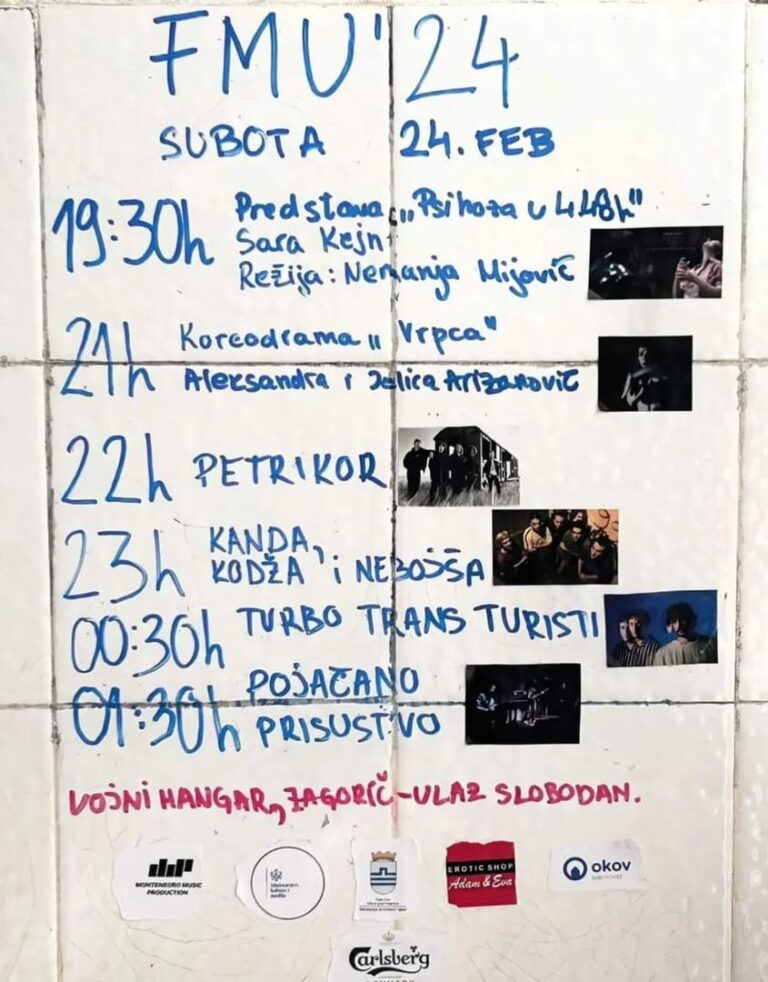 FMU'24
SUBOTA 24. FEB
19:30h Predstava „Psihoza u 4.48h"
Sara Kejn
Režija: Nemanja Mijović
21h Koreodrama „Vrpca"
Aleksandra i Jelica Arizanović
22h PETRIKOR
23h KANDA,
KODŽA i NEBOJŠA
00:30h TURBO TRANS TURISTI
01:30h POJAČANO
PRISUSTVO
VOJNI HANGAR, ZAGORIČ - ULAZ SLOBODAN.
MONTENEGRO MUSIC
PRODUCTION
Ministarstvo
kulture i
medija
EROTIC SHOP
Adam & Eva
okov
Carlsberg